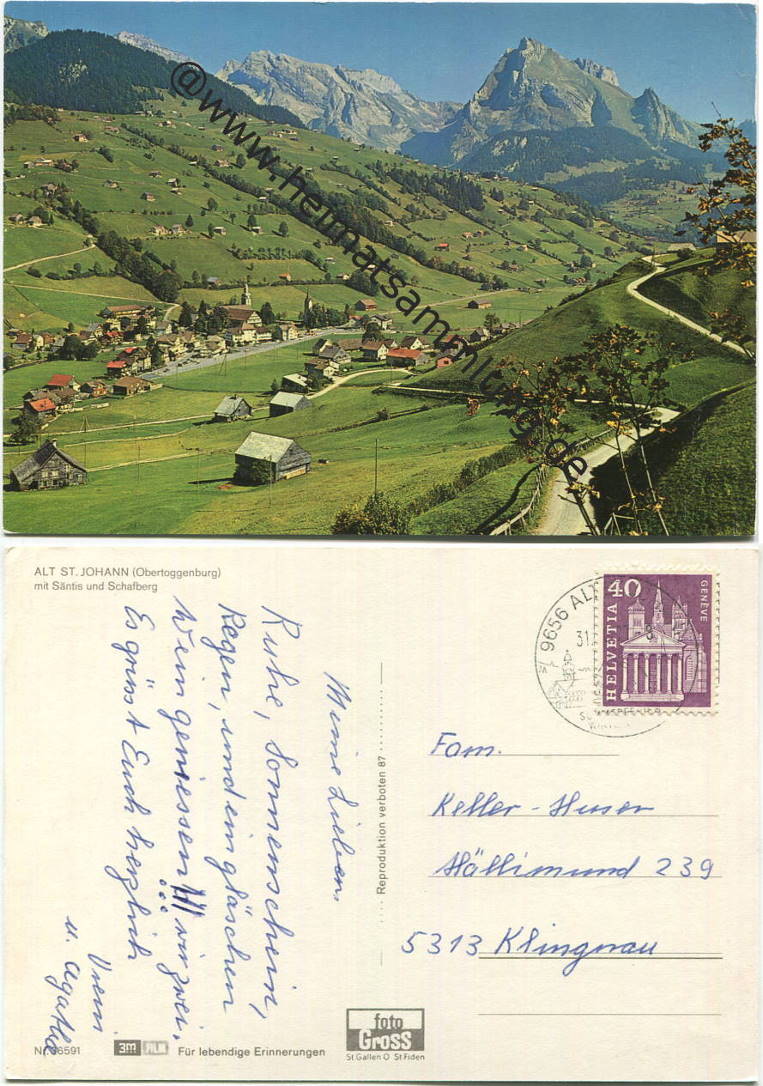 @www.heimatsammlung.de
ALT ST. JOHANN (Obertoggenburg)
mit Säntis und Schafberg
Meine Lieben,
Ruhe, Sonnenschein,
Regen, und ein gläschen
Wein geniessen !!! wir zwei.
Es grüsst Euch herzlich
Vreni
u. Agatha
Nr. 36591
3m FILM
Für lebendige Erinnerungen
foto
GROSS
St Gallen O St Fiden
Reproduktion verboten 87
9656 ALT
31.
HELVETIA
40
GENÈVE
Fam.
Keller-Huser
Hällimund 239
5313 Klingnau